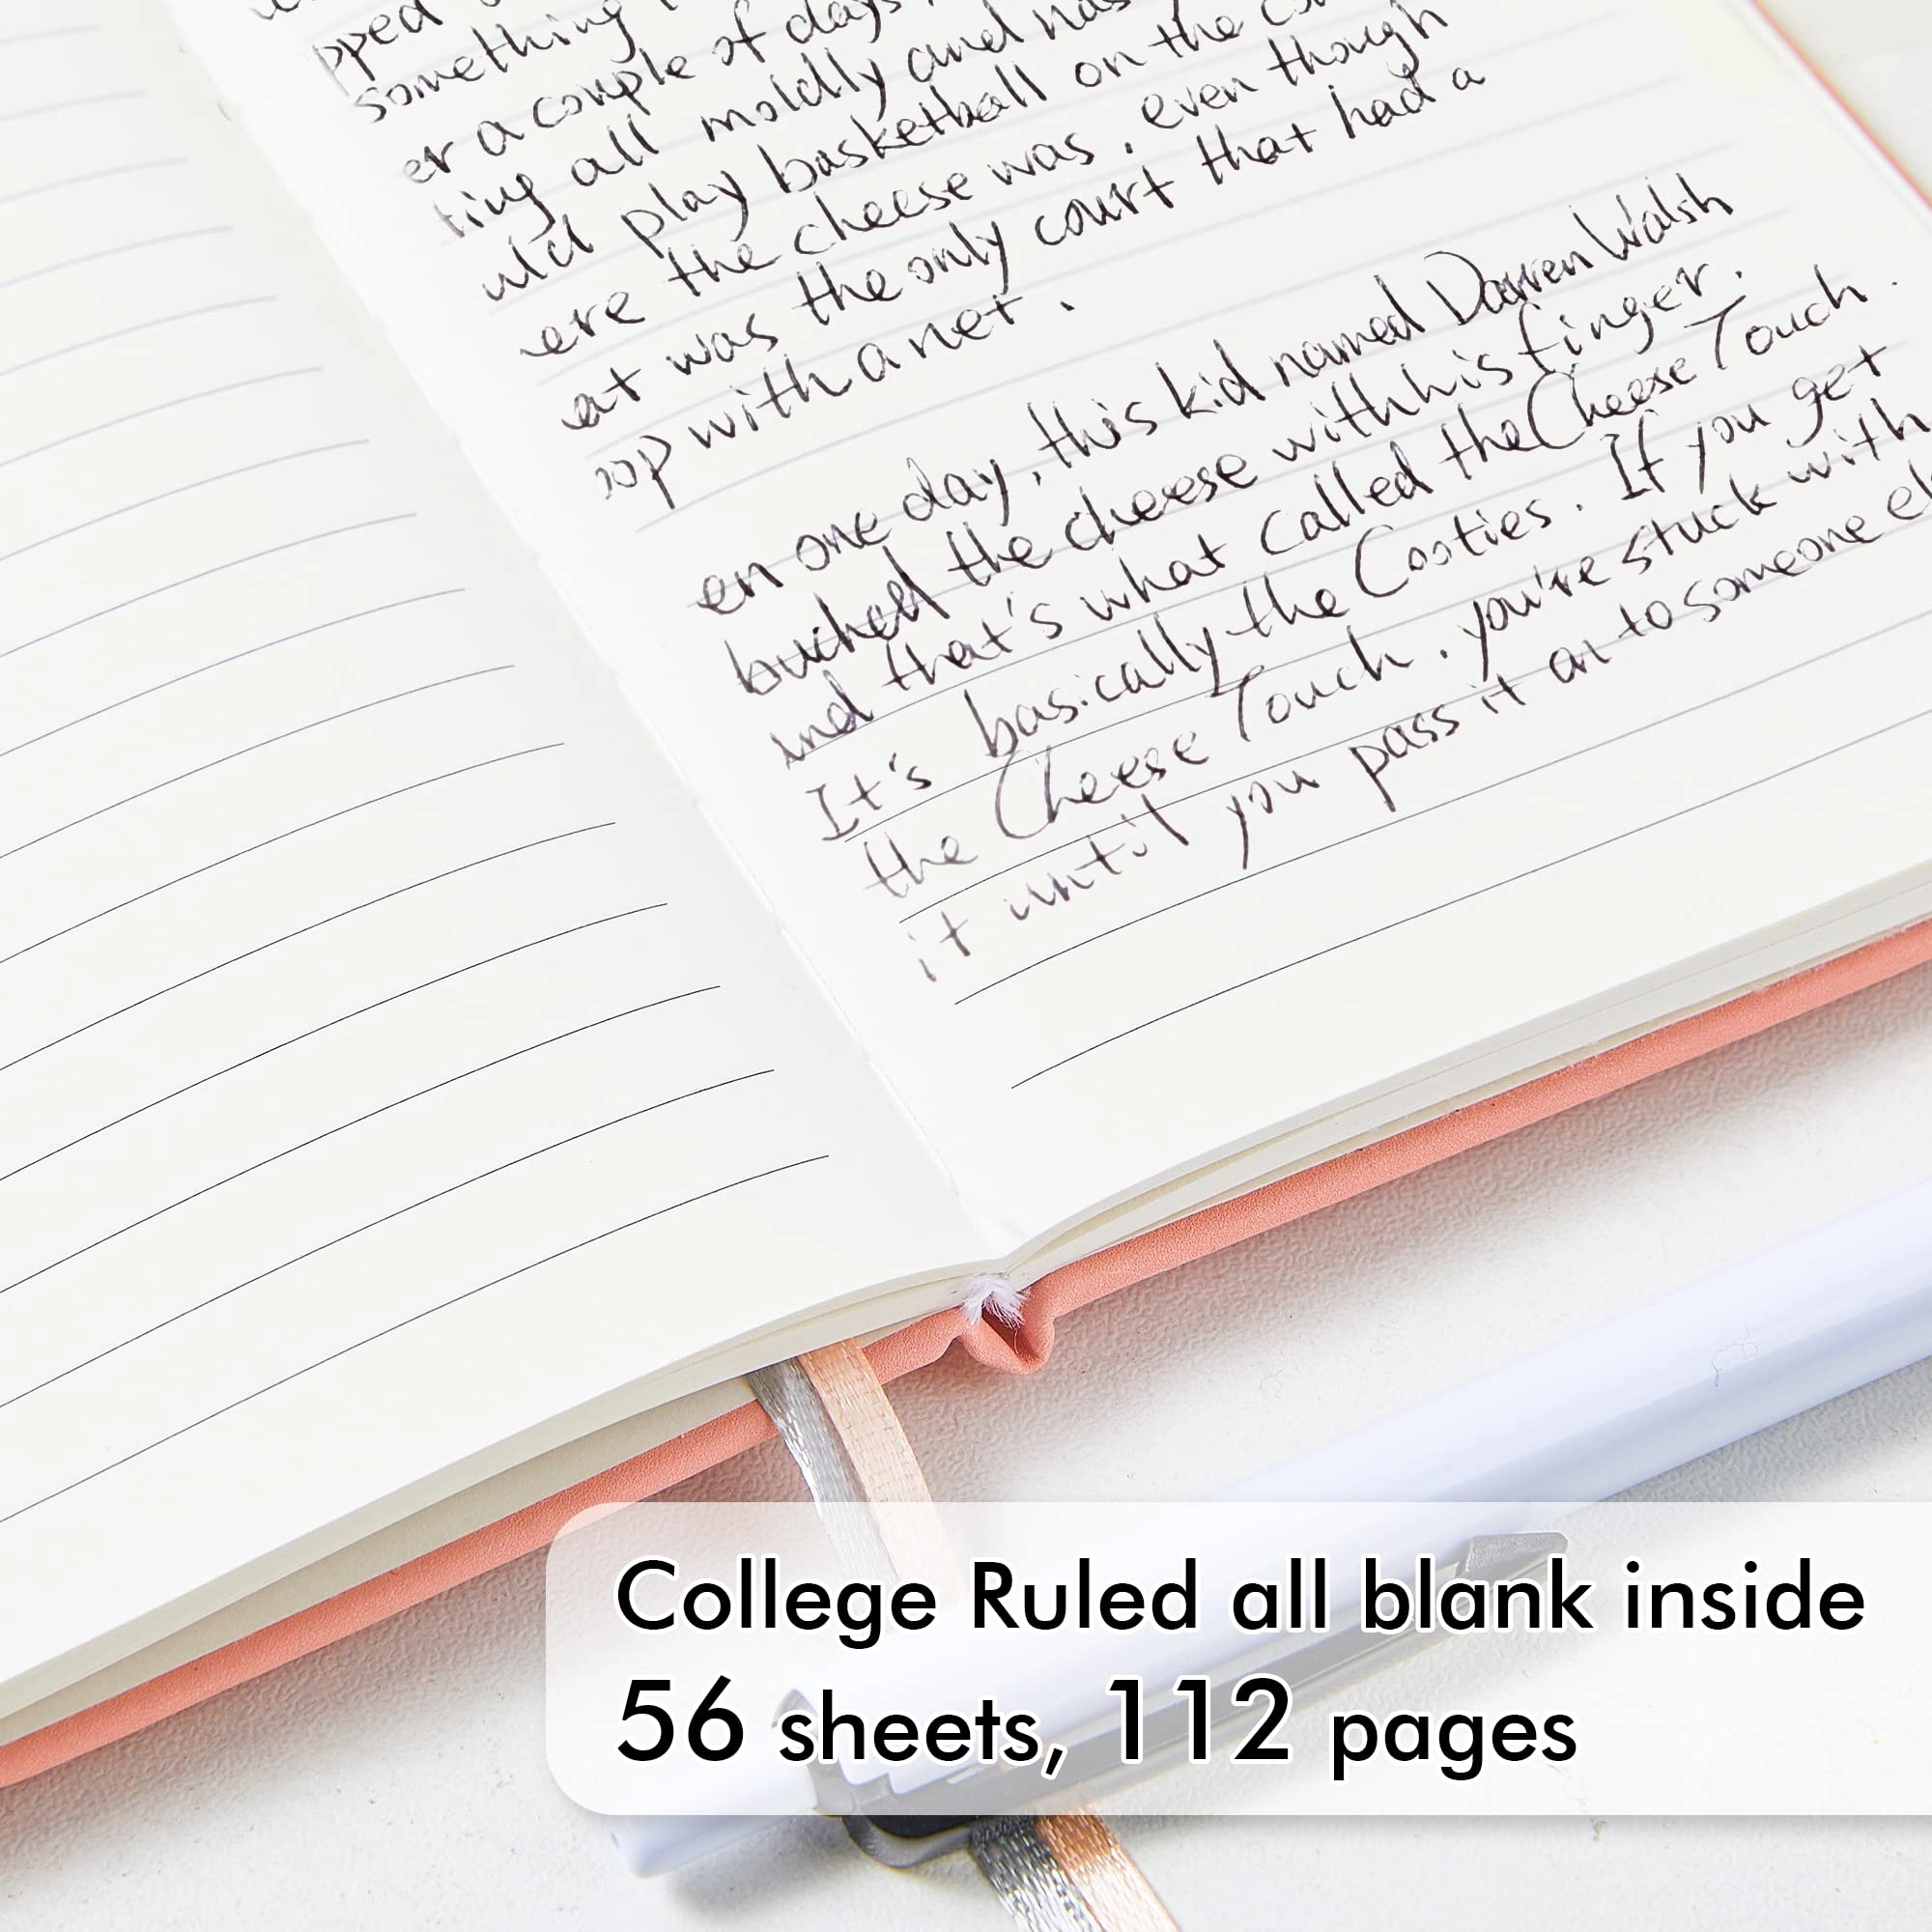 pped
something
er a couple of days,
ting all moldly and nas
uld play basketball on the co
ere the cheese was, even though
at was the only court that had a
oop with a net.
en one day, this kid named Darren Walsh
buched the cheese with his finger.
ind that's what called the Cheese Touch.
It's basically the Cooties. If you get
the Cheese Touch, you're stuck with
it until you pass it on to someone el
College Ruled all blank inside
56 sheets, 112 pages